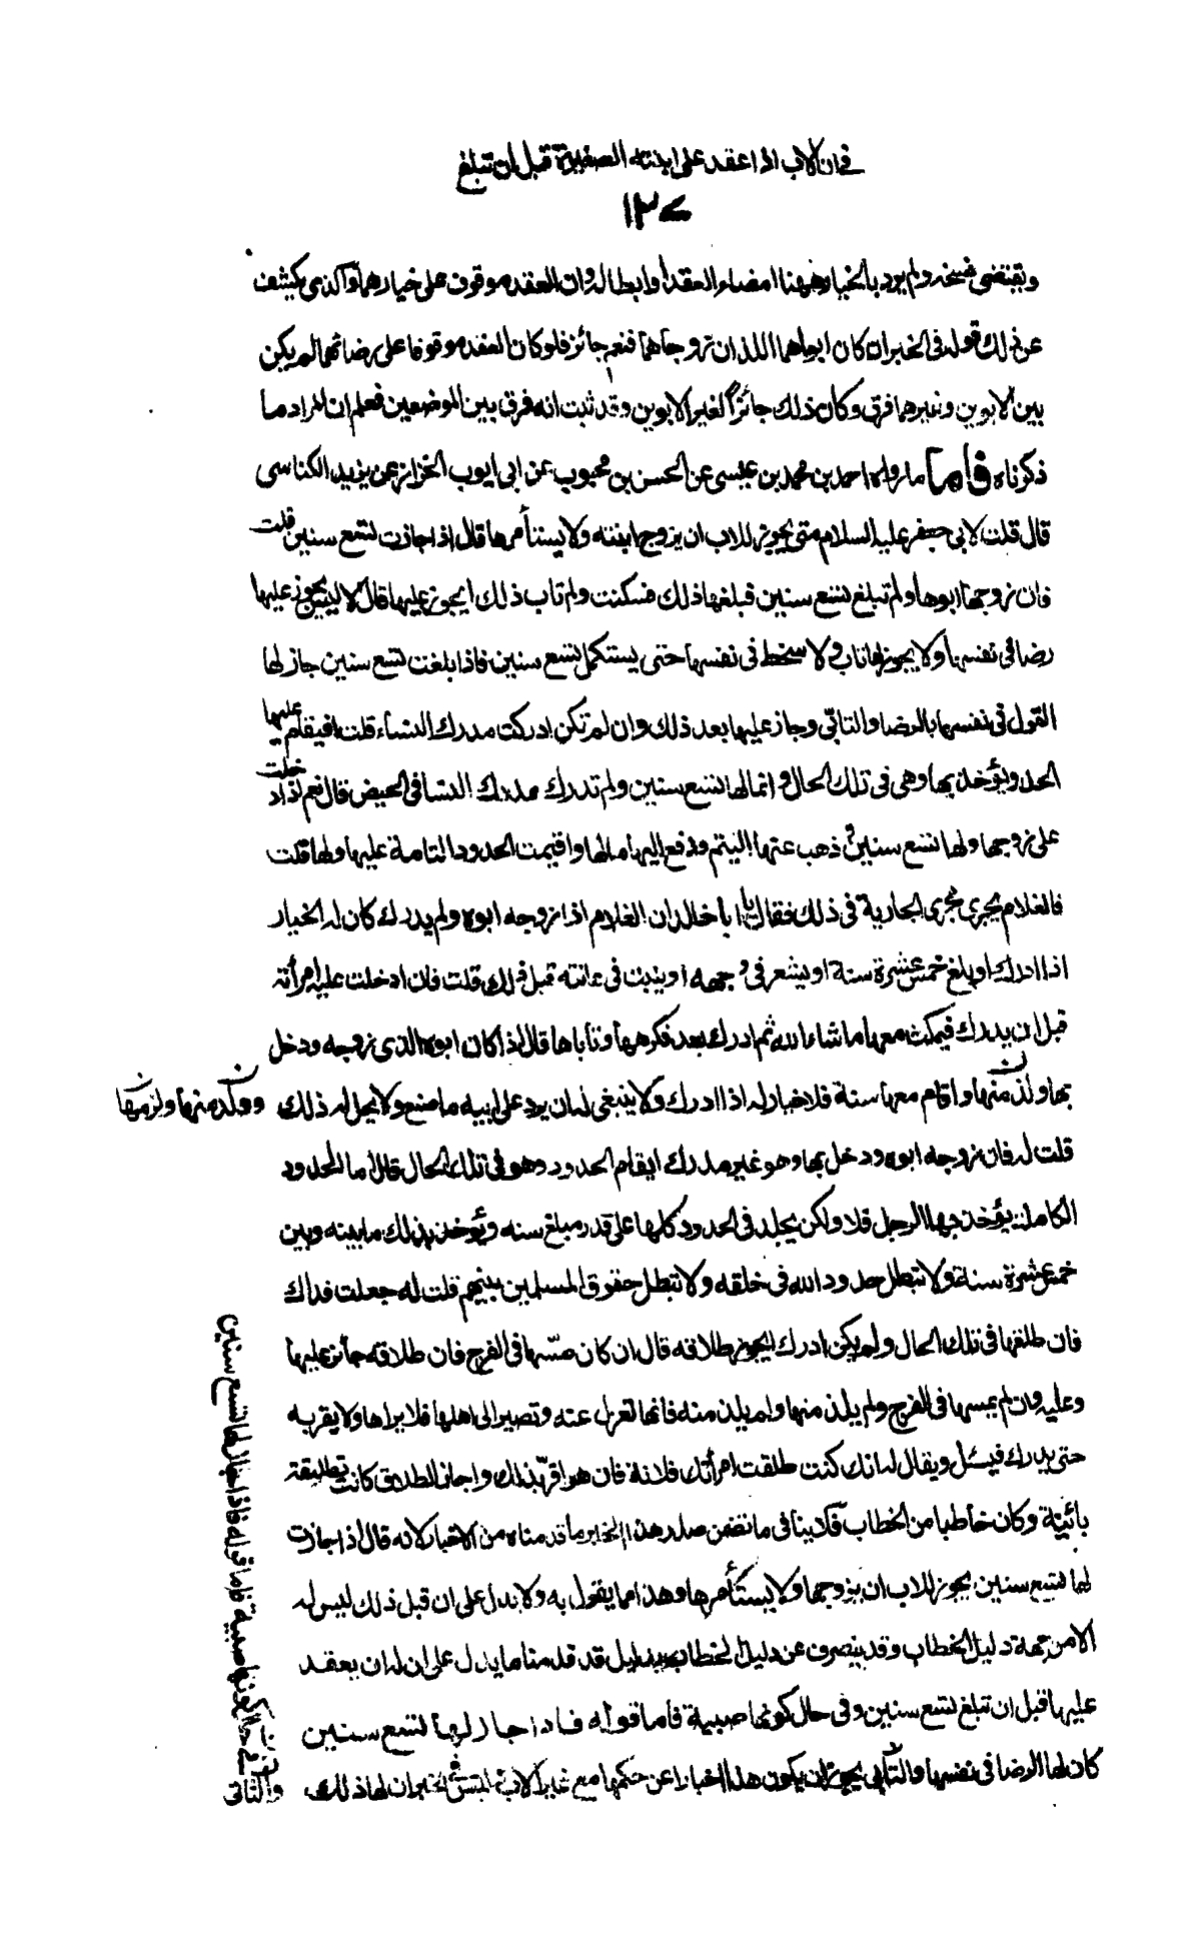 في ان الاب اذا عقد على ابنته الصغيرة قبل ان تبلغ
١٣٧
ويقتضى فسخه ولم يرد بالخيار ههنا امضاء العقد او ابطاله وان العقد موقوف على خيارهما والذى يكشف
عن ذلك قوله فى الخبر ان كان ابواهما اللذان زوجاهما فنعم جائز فلو كان العقد موقوفا على رضائهما لم يكن
بين الابوين وغيرهما فرق وكان ذلك جائزاً لغير الابوين وقد ثبت انه فرق بين الموضعين فعلم ان المراد ما
ذكرناه فأما ما رواه احمد بن محمد بن عيسى عن الحسن بن محبوب عن ابى ايوب الخزاز عن يزيد الكناسى
قال قلت لابى جعفر عليه السلام متى يجوز للاب ان يزوج ابنته ولا يستأمرها قال اذا جازت لتسع سنين قلت
فان زوجها ابوها ولم تبلغ تسع سنين فبلغها ذلك فسكتت ولم تاب ذلك ايجوز عليها قال لا ليس يجوز عليها
رضا فى نفسها ولا يجوز لها تاب ولا سخط فى نفسها حتى يستكمل تسع سنين فاذا بلغت تسع سنين جاز لها
القول فى نفسها بالرضا والتابّى وجاز عليها بعد ذلك وان لم تكن ادركت مدرك النساء قلت افيقام عليها
الحدود ويؤخذ بها وهى فى تلك الحال وانما لها تسع سنين ولم تدرك مدرك النسا فى الحيض قال نعم اذا دخلت
على زوجها ولها تسع سنين ذهب عنها اليتم ودفع اليها مالها واقيمت الحدود التامة عليها ولها قلت
فالغلام يجرى مجرى الجارية فى ذلك فقال يا ابا خالد ان الغلام اذا زوجه ابوه ولم يدرك كان له الخيار
اذا ادرك او بلغ خمس عشرة سنة او يشعر فى وجهه او ينبت فى عانته قبل ذلك قلت فان ادخلت عليه امرأته
قبل ان يدرك فيمكث معها ما شاء الله ثم ادرك بعد فكرهها وتأباها قال اذا كان ابوه الذى زوجه ودخل
بها ولذ منها واقام معها سنة فلا خيار له اذا ادرك ولا ينبغى له ان يرد على ابيه ما صنع ولا يحل له ذلك
قلت له فان زوجه ابوه ودخل بها وهو غير مدرك ايقام الحدود وهو فى تلك الحال قال اما الحدود
الكاملة يؤخذ بها الرجل فلا ولكن يجلد فى الحدود كلها على قدر مبلغ سنه ويؤخذ بذلك ما بينه وبين
خمس عشرة سنة ولا تبطل حدود الله فى خلقه ولا تبطل حقوق المسلمين بينهم قلت له جعلت فداك
فان طلقها فى تلك الحال ولم يكن ادرك ايجوز طلاقه قال ان كان مسّها فى الفرج فان طلاقه جائز عليها
وعليه وان لم يمسها فى الفرج ولم يلذ منها ولم يلذ منه فانها تعزل عنه وتصير الى اهلها فلا يراها ولا يقربه
حتى يدرك فيسئل ويقال له انك كنت طلقت امرأتك فلانة فان هو اقرّ بذلك واجاز الطلاق كانت تطليقة
بائنة وكان خاطبا من الخطاب فلا ينافى ما تضمن صدر هذا الخبر ما قدمناه من الاخبار لانه قال اذا جازت
لها تسع سنين يجوز للاب ان يزوجها ولا يستأمرها وهذا مما يقول به ولا يدل على ان قبل ذلك ليس له
الا من جهة دليل الخطاب وقد ينصرف عن دليل الخطاب بدليل قد قدمنا ما يدل على ان له ان يعقد
عليها قبل ان تبلغ تسع سنين وفى حال كونها صبية فأما قوله فاذا جاز لها تسع سنين
كان لها الرضا فى نفسها والتأبى يجوز ان يكون هذا اخبارا عن حكمها مع غير الاب وليس فى الخبر ان لها ذلك